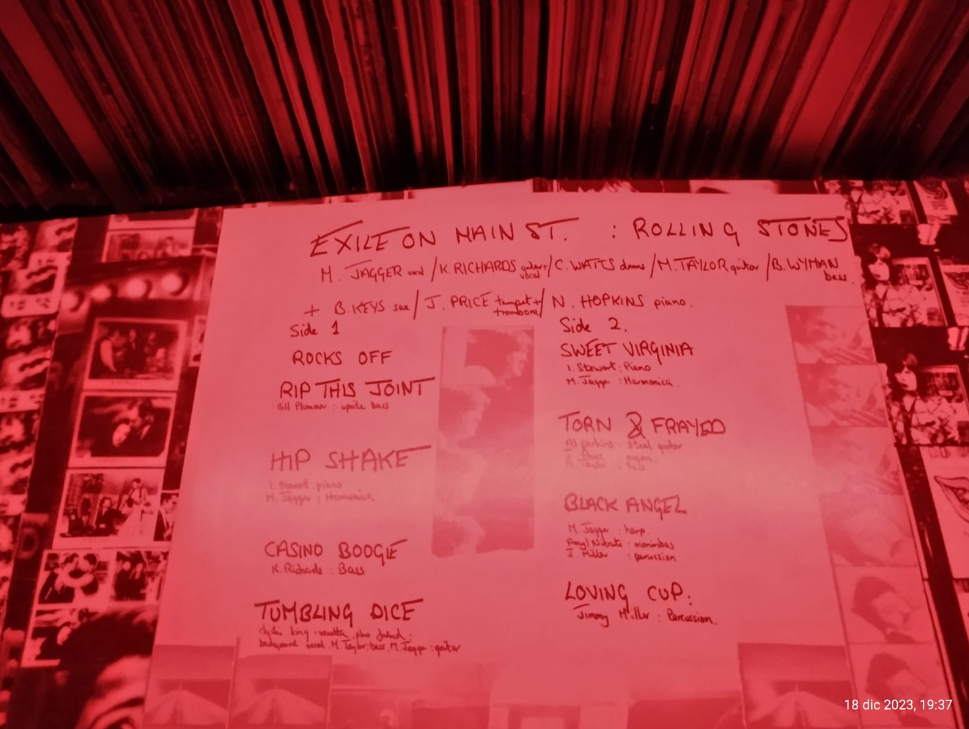 EXILE ON MAIN ST. : ROLLING STONES
M. JAGGER vocal / K. RICHARDS guitar, vocal / C. WATTS drums / M. TAYLOR guitar / B. WYMAN bass.
+ B. KEYS sax / J. PRICE trumpet + trombone / N. HOPKINS piano.
Side 1
ROCKS OFF
RIP THIS JOINT
Bill Plummer : bass
HIP SHAKE
I. Stewart : piano
M. Jagger : Harmonica
CASINO BOOGIE
K. Richards : Bass
TUMBLING DICE
background vocal. M. Taylor : bass, M. Jagger : guitar
Side 2.
SWEET VIRGINIA
I. Stewart : Piano
M. Jagger : Harmonica
TORN & FRAYED
Al perkins : Steel guitar
organ
M. Taylor : bass
BLACK ANGEL
M. Jagger : harp.
Amyl Nitrate : marimbas
J. Miller : percussion
LOVING CUP:
Jimmy Miller : Percussion.
18 dic 2023, 19:37